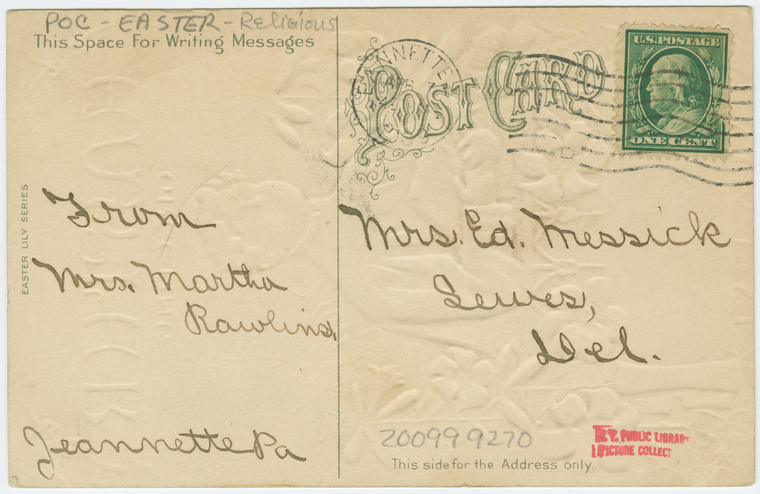 POC - EASTER - Religious
This Space For Writing Messages
POST CARD
U.S. POSTAGE
ONE CENT
JEANNETTE
EASTER LILY SERIES
From
Mrs. Martha
Rawlins,
Jeannette Pa
Mrs. Ed. Messick
Lewes,
Del.
200999270
This side for the Address only.
N.Y. PUBLIC LIBRARY
PICTURE COLLECT